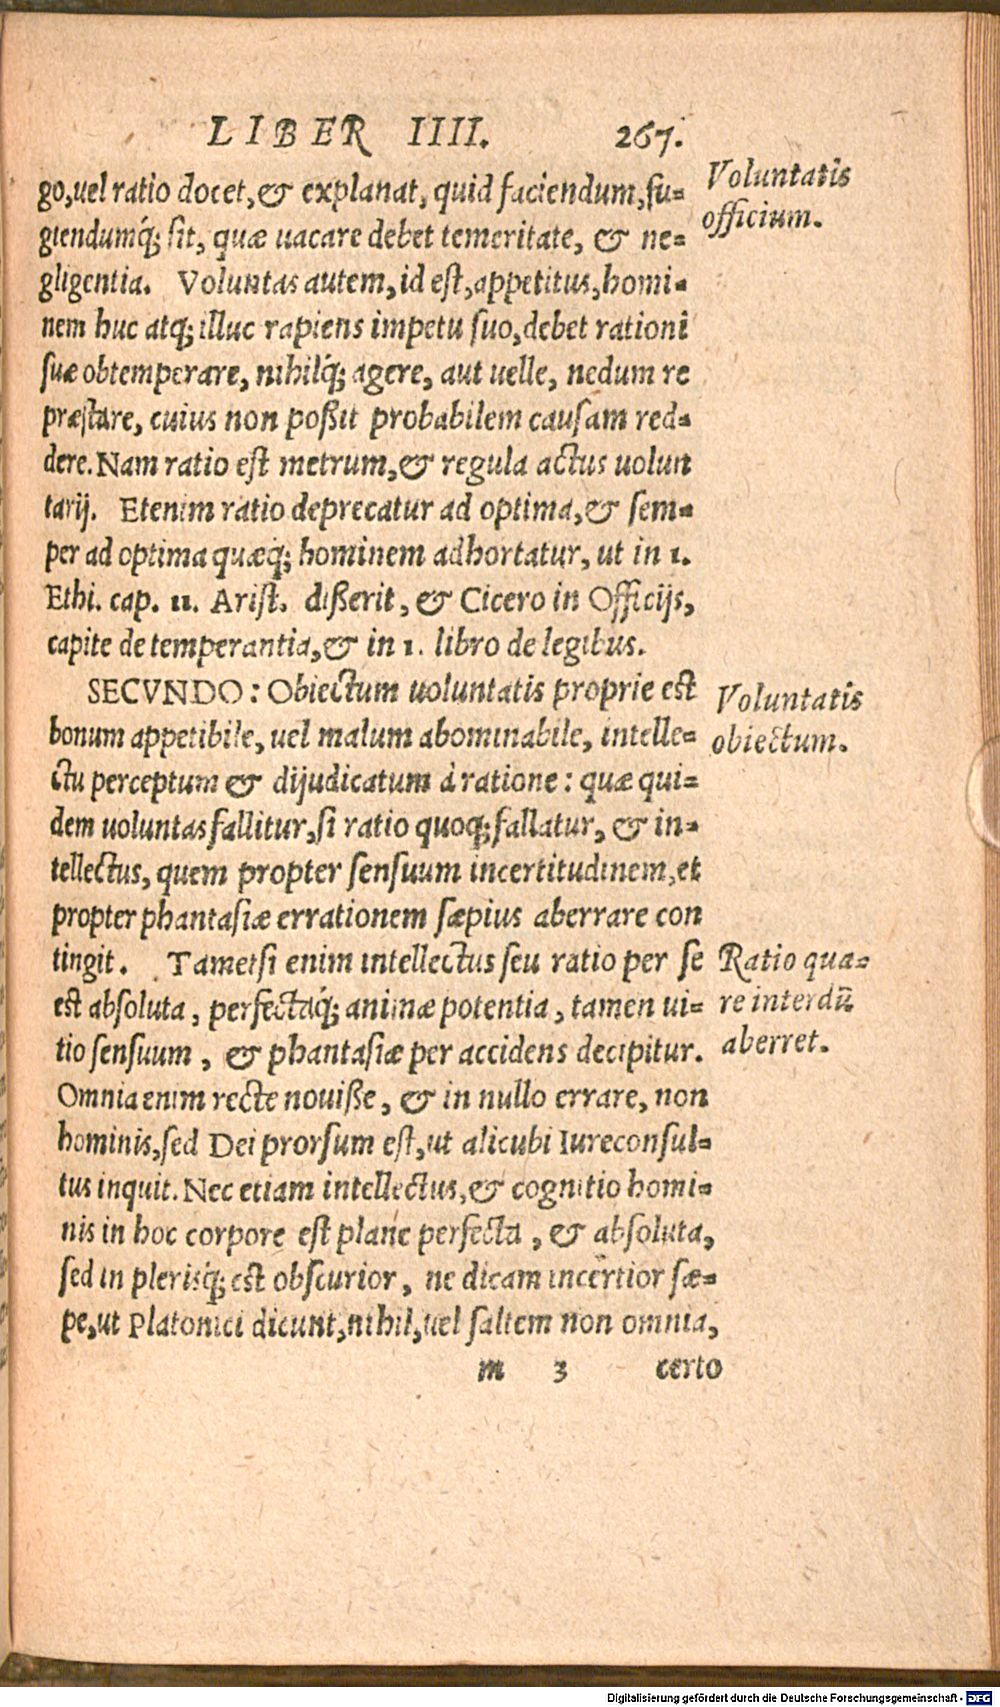 LIBER IIII. 267.
go, uel ratio docet, & explanat, quid faciendum, fu-
giendumq́; sit, quæ uacare debet temeritate, & ne-
gligentia. Voluntas autem, id est, appetitus, homi-
nem huc atq; illuc rapiens impetu suo, debet rationi
suæ obtemperare, nihilq́; agere, aut uelle, nedum re
præstare, cuius non poßit probabilem causam red-
dere. Nam ratio est metrum, & regula actus volun
tarij. Etenim ratio deprecatur ad optima, & sem-
per ad optima quæq; hominem adhortatur, ut in 1.
Ethi. cap. 11. Arist. dißerit, & Cicero in Officijs,
capite de temperantia, & in 1. libro de legibus.
SECVNDO: Obiectum uoluntatis proprie est
bonum appetibile, uel malum abominabile, intelle-
ctu perceptum & dijudicatum à ratione: quæ qui-
dem uoluntas fallitur, si ratio quoq; fallatur, & in-
tellectus, quem propter sensuum incertitudinem, et
propter phantasiæ errationem sæpius aberrare con
tingit. Tametsi enim intellectus seu ratio per se
est absoluta, perfectaq́; animæ potentia, tamen ui-
tio sensuum, & phantasiæ per accidens decipitur.
Omnia enim recte nouiße, & in nullo errare, non
hominis, sed Dei prorsum est, ut alicubi Iureconsul-
tus inquit. Nec etiam intellectus, & cognitio homi-
nis in hoc corpore est plane perfecta, & absoluta,
sed in plerisq́; est obscurior, ne dicam incertior sæ-
pe, ut Platonici dicunt, nihil, uel saltem non omnia,
m 3 certo
Voluntatis
officium.
Voluntatis
obiectum.
Ratio qua-
re interdū
aberret.
Digitalisierung gefördert durch die Deutsche Forschungsgemeinschaft - DFG